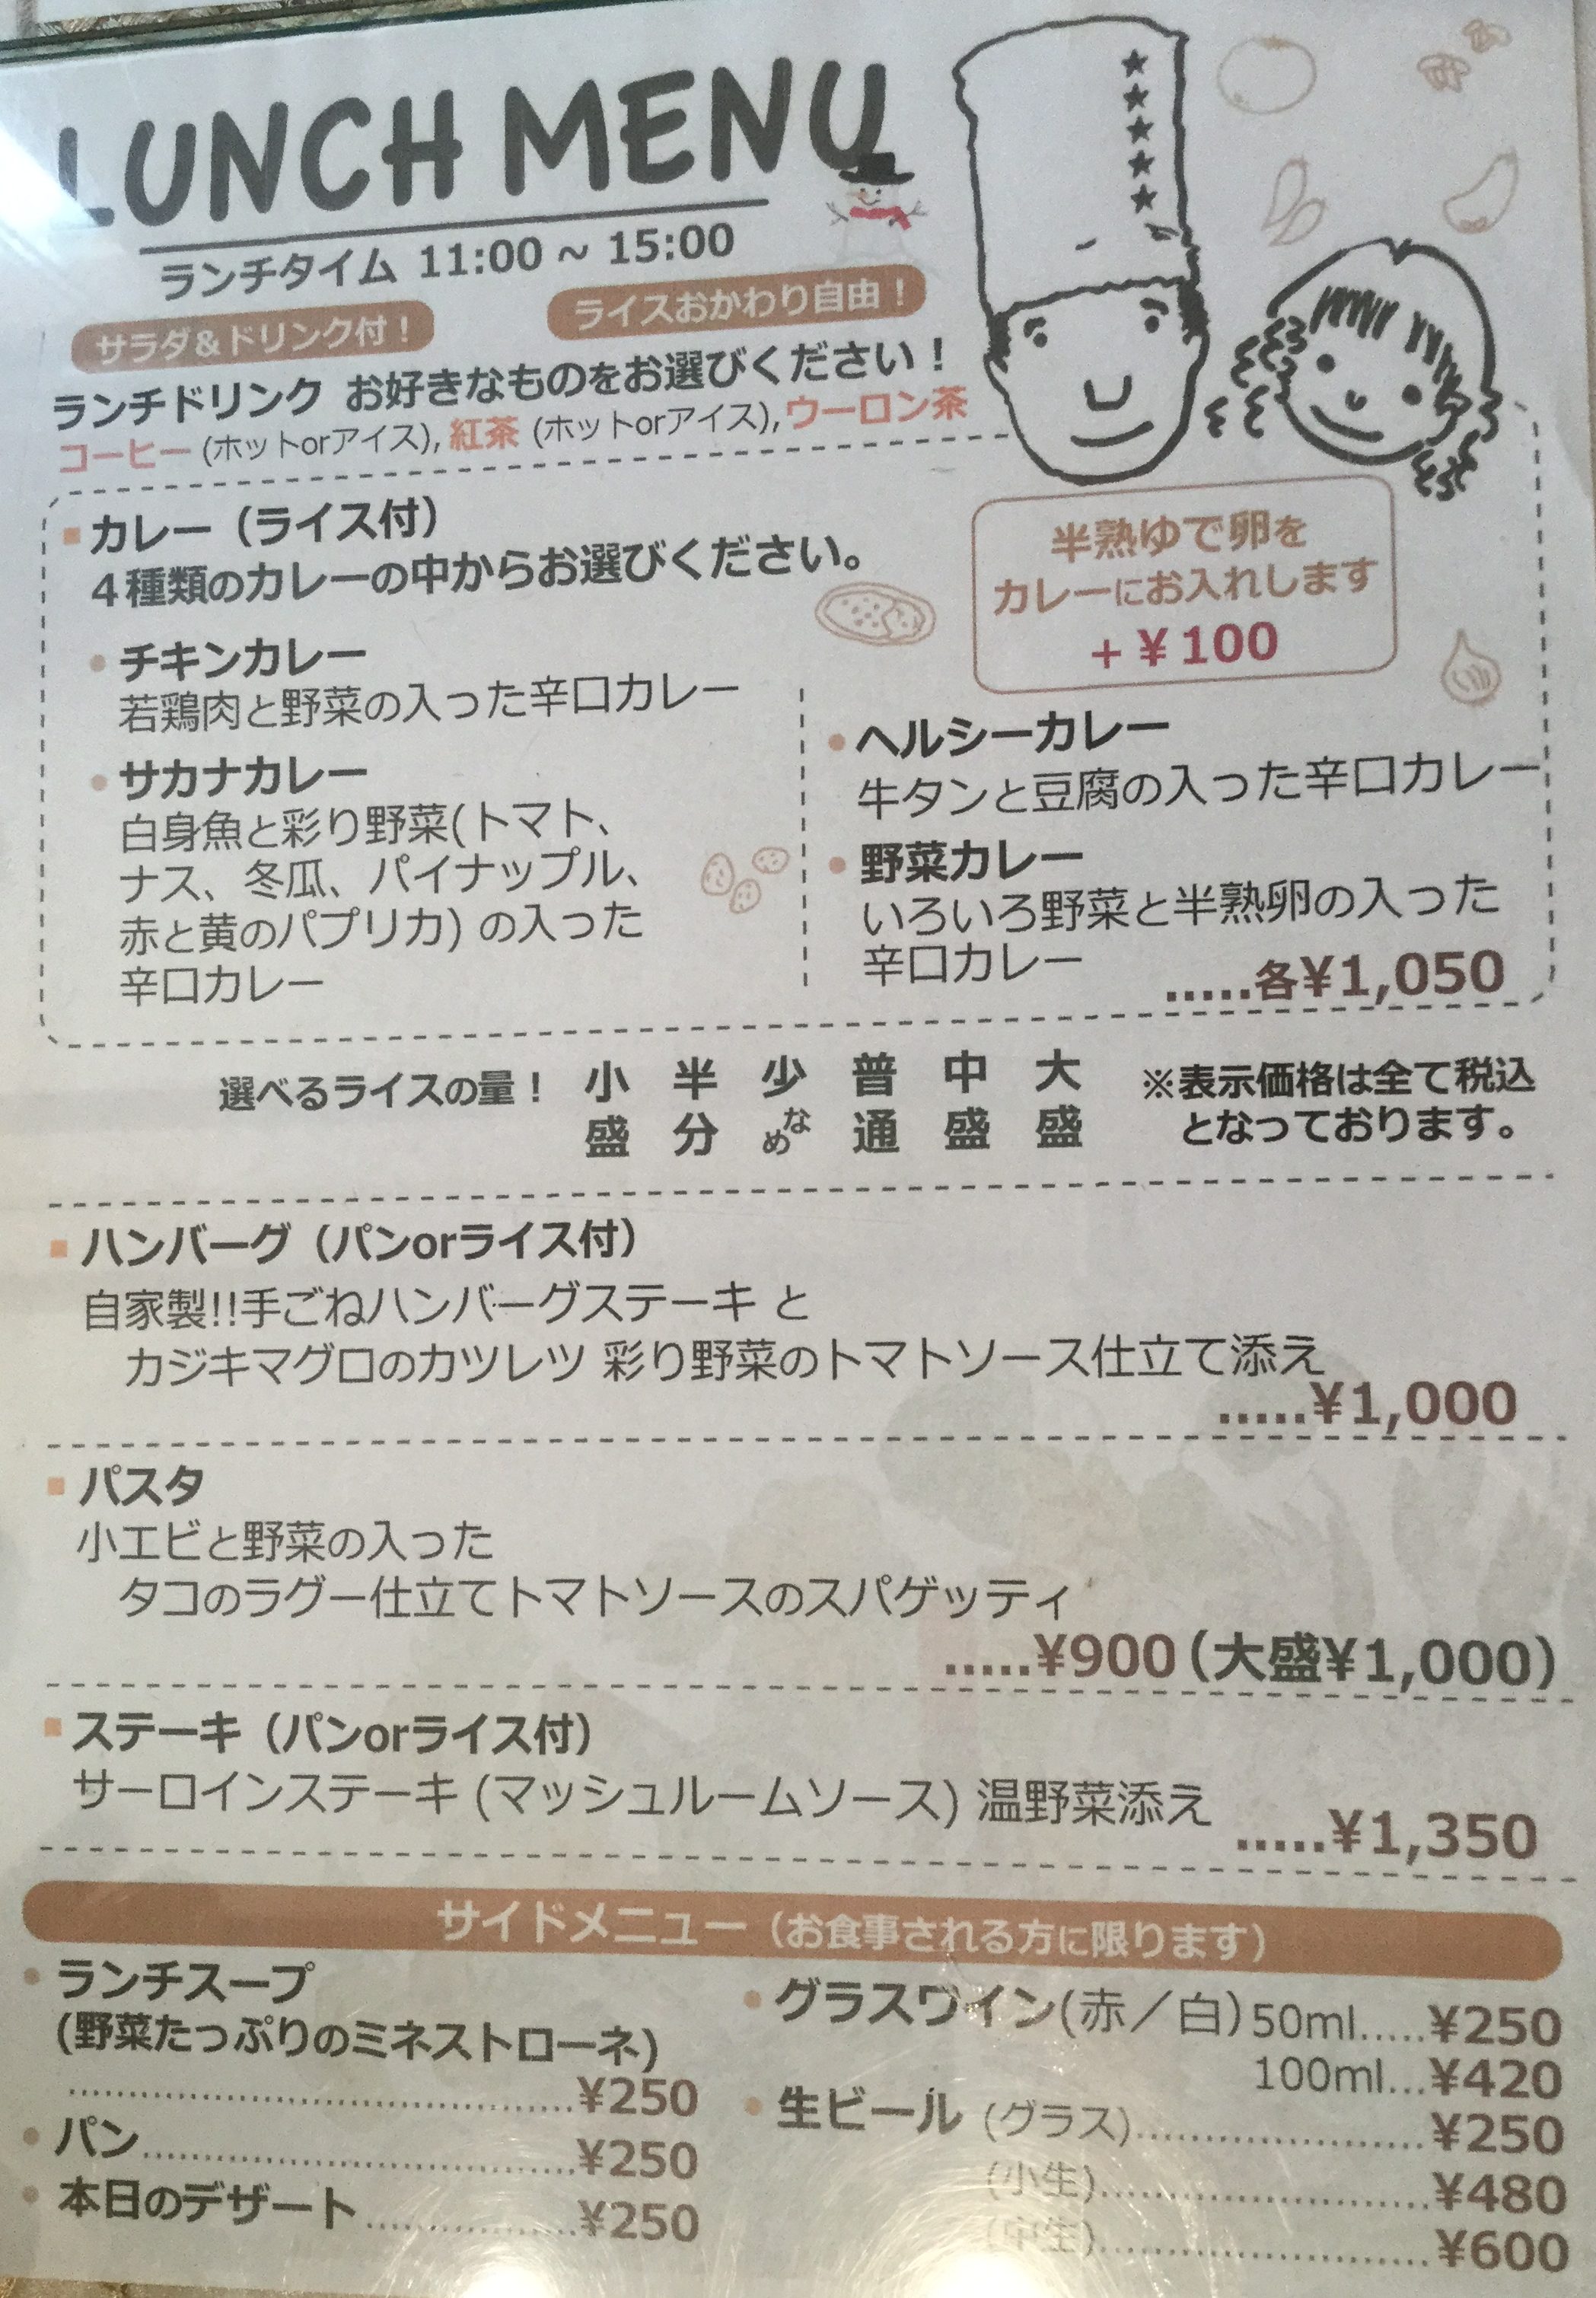 LUNCH MENU
ランチタイム 11:00 ~ 15:00
サラダ&ドリンク付！
ライスおかわり自由！
ランチドリンク お好きなものをお選びください！
コーヒー (ホットorアイス), 紅茶 (ホットorアイス), ウーロン茶
カレー（ライス付）
４種類のカレーの中からお選びください。
半熟ゆで卵を
カレーにお入れします
+ ¥100
チキンカレー
若鶏肉と野菜の入った辛口カレー
サカナカレー
白身魚と彩り野菜(トマト、
ナス、冬瓜、パイナップル、
赤と黄のパプリカ) の入った
辛口カレー
ヘルシーカレー
牛タンと豆腐の入った辛口カレー
野菜カレー
いろいろ野菜と半熟卵の入った
辛口カレー
.....各¥1,050
選べるライスの量！ 小盛 半分 少なめ 普通 中盛 大盛
※表示価格は全て税込
となっております。
ハンバーグ（パンorライス付）
自家製!!手ごねハンバーグステーキ と
カジキマグロのカツレツ 彩り野菜のトマトソース仕立て添え
.....¥1,000
パスタ
小エビと野菜の入った
タコのラグー仕立てトマトソースのスパゲッティ
.....¥900（大盛¥1,000）
ステーキ（パンorライス付）
サーロインステーキ (マッシュルームソース) 温野菜添え
.....¥1,350
サイドメニュー（お食事される方に限ります）
ランチスープ
(野菜たっぷりのミネストローネ)
¥250
パン ¥250
本日のデザート ¥250
グラスワイン(赤／白) 50ml.....¥250
100ml...¥420
生ビール (グラス) ¥250
(小生) ¥480
(中生) ¥600